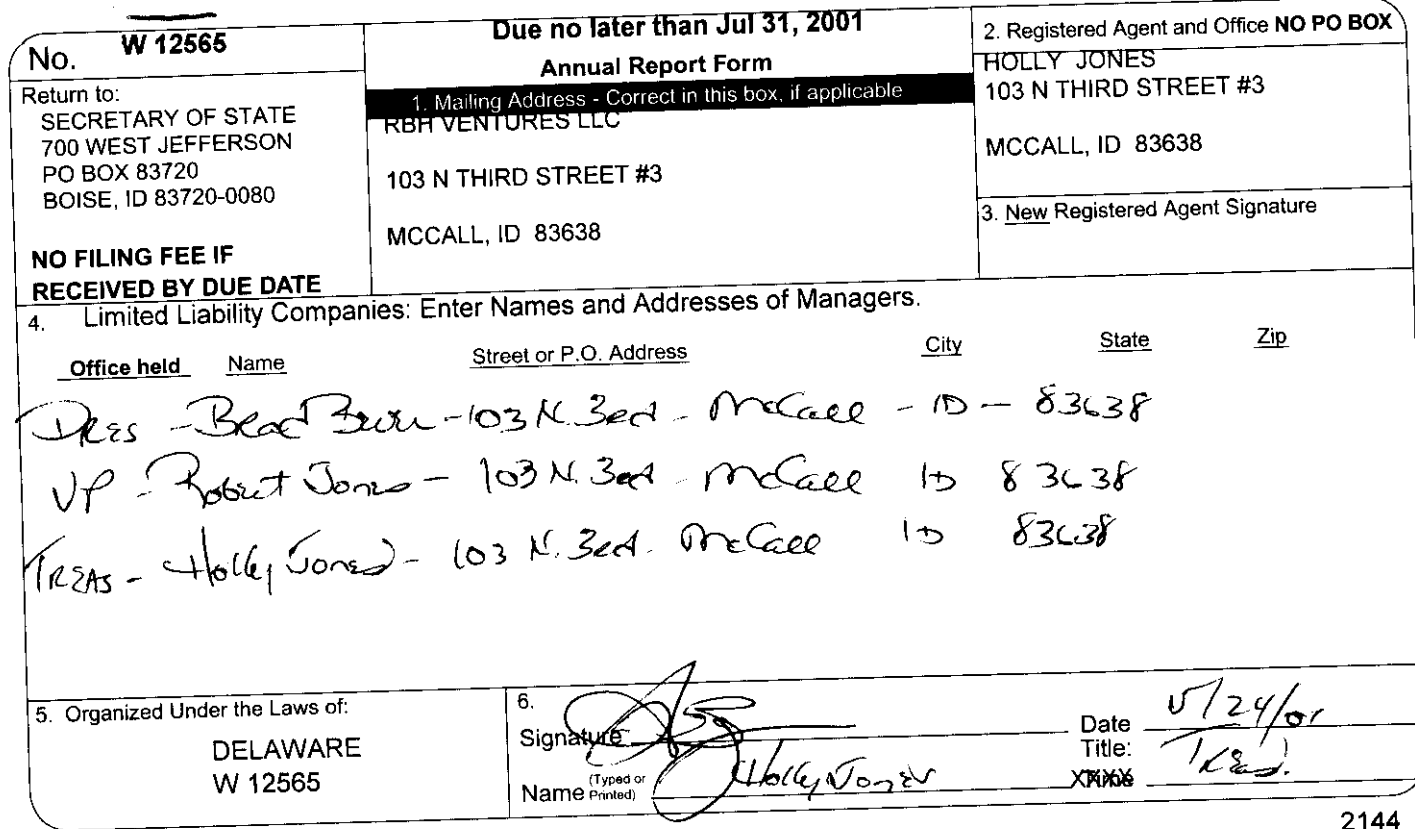 No. W 12565
Return to:
SECRETARY OF STATE
700 WEST JEFFERSON
PO BOX 83720
BOISE, ID 83720-0080
NO FILING FEE IF
RECEIVED BY DUE DATE
Due no later than Jul 31, 2001
Annual Report Form
1. Mailing Address - Correct in this box, if applicable
RBH VENTURES LLC
103 N THIRD STREET #3
MCCALL, ID 83638
2. Registered Agent and Office NO PO BOX
HOLLY JONES
103 N THIRD STREET #3
MCCALL, ID 83638
3. New Registered Agent Signature
4. Limited Liability Companies: Enter Names and Addresses of Managers.
Office held Name Street or P.O. Address City State Zip
PRES - Brad - 103 N. 3rd - McCall - ID - 83638
VP - Robert Jones - 103 N. 3rd - McCall ID 83638
TREAS - Holly Jones - 103 N. 3rd - McCall ID 83638
5. Organized Under the Laws of:
DELAWARE
W 12565
6.
Signature Date 5/24/01
Name (Typed or Printed) Holly Jones Title: Treas.
2144